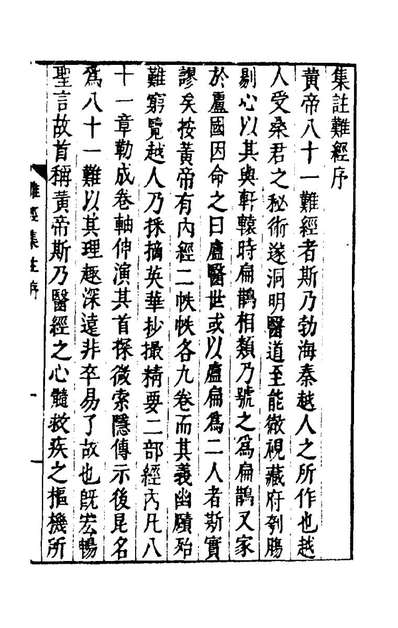 集註難經序
黃帝八十一難經者斯乃勃海秦越人之所作也越
人受桑君之秘術遂洞明醫道至能徹視藏府刳腸
剔心以其與軒轅時扁鵲相類乃號之為扁鵲又家
於盧國因命之曰盧醫世或以盧扁為二人者斯實
謬矣按黃帝有內經二帙帙各九卷而其義幽賾殆
難窮覽越人乃採摘英華抄撮精要二部經內凡八
十一章勒成卷軸伸演其首探微索隱傳示後昆名
為八十一難以其理趣深遠非卒易了故也既宏暢
聖言故首稱黃帝斯乃醫經之心髓救疾之樞機所
難經集註序
一